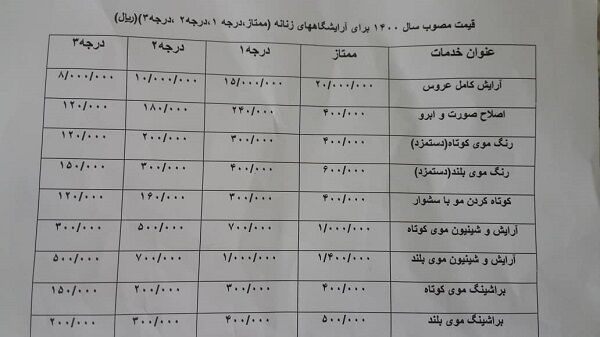 قیمت مصوب سال ۱۴۰۰ برای آرایشگاههای زنانه (ممتاز،درجه ۱،درجه۲ ،درجه۳)(ریال)
عنوان خدمات ممتاز درجه۱ درجه۲ درجه۳
آرایش کامل عروس ۲۰/۰۰۰/۰۰۰ ۱۵/۰۰۰/۰۰۰ ۱۰/۰۰۰/۰۰۰ ۸/۰۰۰/۰۰۰
اصلاح صورت و ابرو ۴۰۰/۰۰۰ ۲۴۰/۰۰۰ ۱۸۰/۰۰۰ ۱۲۰/۰۰۰
رنگ موی کوتاه(دستمزد) ۴۰۰/۰۰۰ ۳۰۰/۰۰۰ ۲۰۰/۰۰۰ ۱۲۰/۰۰۰
رنگ موی بلند(دستمزد) ۶۰۰/۰۰۰ ۴۰۰/۰۰۰ ۳۰۰/۰۰۰ ۱۵۰/۰۰۰
کوتاه کردن مو با سشوار ۴۰۰/۰۰۰ ۳۰۰/۰۰۰ ۱۶۰/۰۰۰ ۱۲۰/۰۰۰
آرایش و شینیون موی کوتاه ۱/۰۰۰/۰۰۰ ۷۰۰/۰۰۰ ۵۰۰/۰۰۰ ۳۰۰/۰۰۰
آرایش و شینیون موی بلند ۱/۴۰۰/۰۰۰ ۱/۰۰۰/۰۰۰ ۷۰۰/۰۰۰ ۵۰۰/۰۰۰
براشینگ موی کوتاه ۴۰۰/۰۰۰ ۳۰۰/۰۰۰ ۲۰۰/۰۰۰ ۱۵۰/۰۰۰
براشینگ موی بلند ۵۰۰/۰۰۰ ۴۰۰/۰۰۰ ۳۰۰/۰۰۰ ۲۰۰/۰۰۰